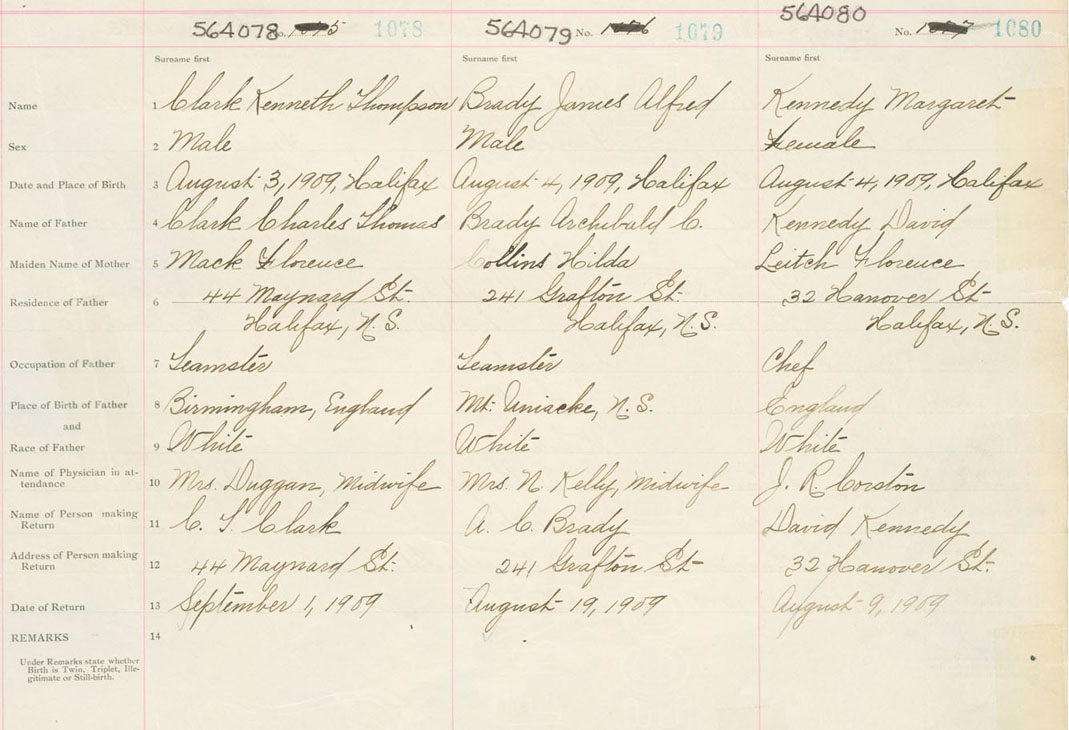 56A078 No. 1078 56A079 No. 1079 56A080 No. 1080
Surname first Surname first Surname first
Name 1 Clark Kenneth Thompson Brady James Alfred Kennedy Margaret
Sex 2 Male Male Female
Date and Place of Birth 3 August 3, 1909, Halifax August 4, 1909, Halifax August 4, 1909, Halifax
Name of Father 4 Clark Charles Thomas Brady Archibald C. Kennedy David
Maiden Name of Mother 5 Mack Florence Collins Hilda Leitch Florence
Residence of Father 6 44 Maynard St. 241 Grafton St. 32 Hanover St
Halifax, N.S. Halifax, N.S. Halifax, N.S.
Occupation of Father 7 Teamster Teamster Chef
Place of Birth of Father 8 Birmingham, England Mt. Uniacke, N.S. England
and
Race of Father 9 White White White
Name of Physician in at-
tendance 10 Mrs. Duggan, Midwife Mrs. N Kelly, Midwife J. R. Corston
Name of Person making
Return 11 C. T. Clark A. C. Brady David Kennedy
Address of Person making
Return 12 44 Maynard St. 241 Grafton St 32 Hanover St.
Date of Return 13 September 1, 1909 August 19, 1909 August 9, 1909
REMARKS 14
Under Remarks state whether
Birth is Twin, Triplet, Ille-
gitimate or Still-birth.